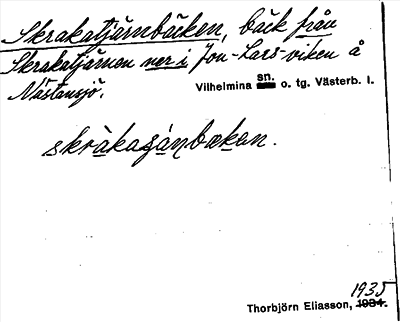 Skrakatjärnbäcken, bäck från
Skrakatjärnen ner i Jon-Lars-viken å
Nästansjö.
Vilhelmina sn. o. tg. Västerb. l.
skràkaʒánbœken.
1935
Thorbjörn Eliasson, 1934.